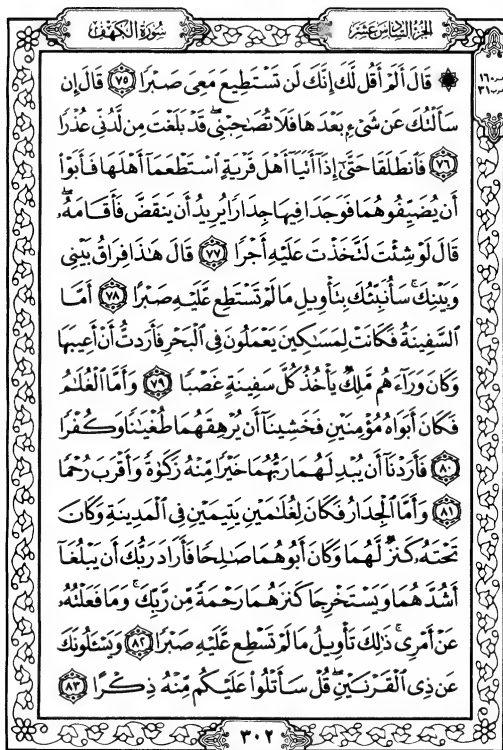 الجزء السادس عشر
سورة الكهف
۞ قَالَ أَلَمْ أَقُل لَّكَ إِنَّكَ لَن تَسْتَطِيعَ مَعِيَ صَبْرًا ﴿٧٥﴾ قَالَ إِن
سَأَلْتُكَ عَن شَيْءٍ بَعْدَهَا فَلَا تُصَاحِبْنِي ۖ قَدْ بَلَغْتَ مِن لَّدُنِّي عُذْرًا
﴿٧٦﴾ فَانطَلَقَا حَتَّىٰ إِذَا أَتَيَا أَهْلَ قَرْيَةٍ اسْتَطْعَمَا أَهْلَهَا فَأَبَوْا
أَن يُضَيِّفُوهُمَا فَوَجَدَا فِيهَا جِدَارًا يُرِيدُ أَن يَنقَضَّ فَأَقَامَهُ ۖ
قَالَ لَوْ شِئْتَ لَتَّخَذْتَ عَلَيْهِ أَجْرًا ﴿٧٧﴾ قَالَ هَٰذَا فِرَاقُ بَيْنِي
وَبَيْنِكَ ۚ سَأُنَبِّئُكَ بِتَأْوِيلِ مَا لَمْ تَسْتَطِع عَّلَيْهِ صَبْرًا ﴿٧٨﴾ أَمَّا
السَّفِينَةُ فَكَانَتْ لِمَسَاكِينَ يَعْمَلُونَ فِي الْبَحْرِ فَأَرَدتُّ أَنْ أَعِيبَهَا
وَكَانَ وَرَاءَهُم مَّلِكٌ يَأْخُذُ كُلَّ سَفِينَةٍ غَصْبًا ﴿٧٩﴾ وَأَمَّا الْغُلَامُ
فَكَانَ أَبَوَاهُ مُؤْمِنَيْنِ فَخَشِينَا أَن يُرْهِقَهُمَا طُغْيَانًا وَكُفْرًا
﴿٨٠﴾ فَأَرَدْنَا أَن يُبْدِلَهُمَا رَبُّهُمَا خَيْرًا مِّنْهُ زَكَوٰةً وَأَقْرَبَ رُحْمًا
﴿٨١﴾ وَأَمَّا الْجِدَارُ فَكَانَ لِغُلَامَيْنِ يَتِيمَيْنِ فِي الْمَدِينَةِ وَكَانَ
تَحْتَهُ كَنزٌ لَّهُمَا وَكَانَ أَبُوهُمَا صَالِحًا فَأَرَادَ رَبُّكَ أَن يَبْلُغَا
أَشُدَّهُمَا وَيَسْتَخْرِجَا كَنزَهُمَا رَحْمَةً مِّن رَّبِّكَ ۚ وَمَا فَعَلْتُهُ
عَنْ أَمْرِي ۚ ذَٰلِكَ تَأْوِيلُ مَا لَمْ تَسْطِع عَّلَيْهِ صَبْرًا ﴿٨٢﴾ وَيَسْأَلُونَكَ
عَن ذِي الْقَرْنَيْنِ ۖ قُلْ سَأَتْلُو عَلَيْكُم مِّنْهُ ذِكْرًا ﴿٨٣﴾
٣٠٢